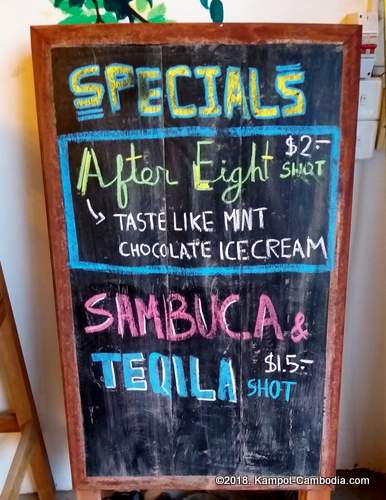 SPECIALS
After Eight $2.- SHOT
TASTE LIKE MINT
CHOCOLATE ICECREAM
SAMBUCA &
TEQILA $1.5.- SHOT
©2018. Kampot-Cambodia.com